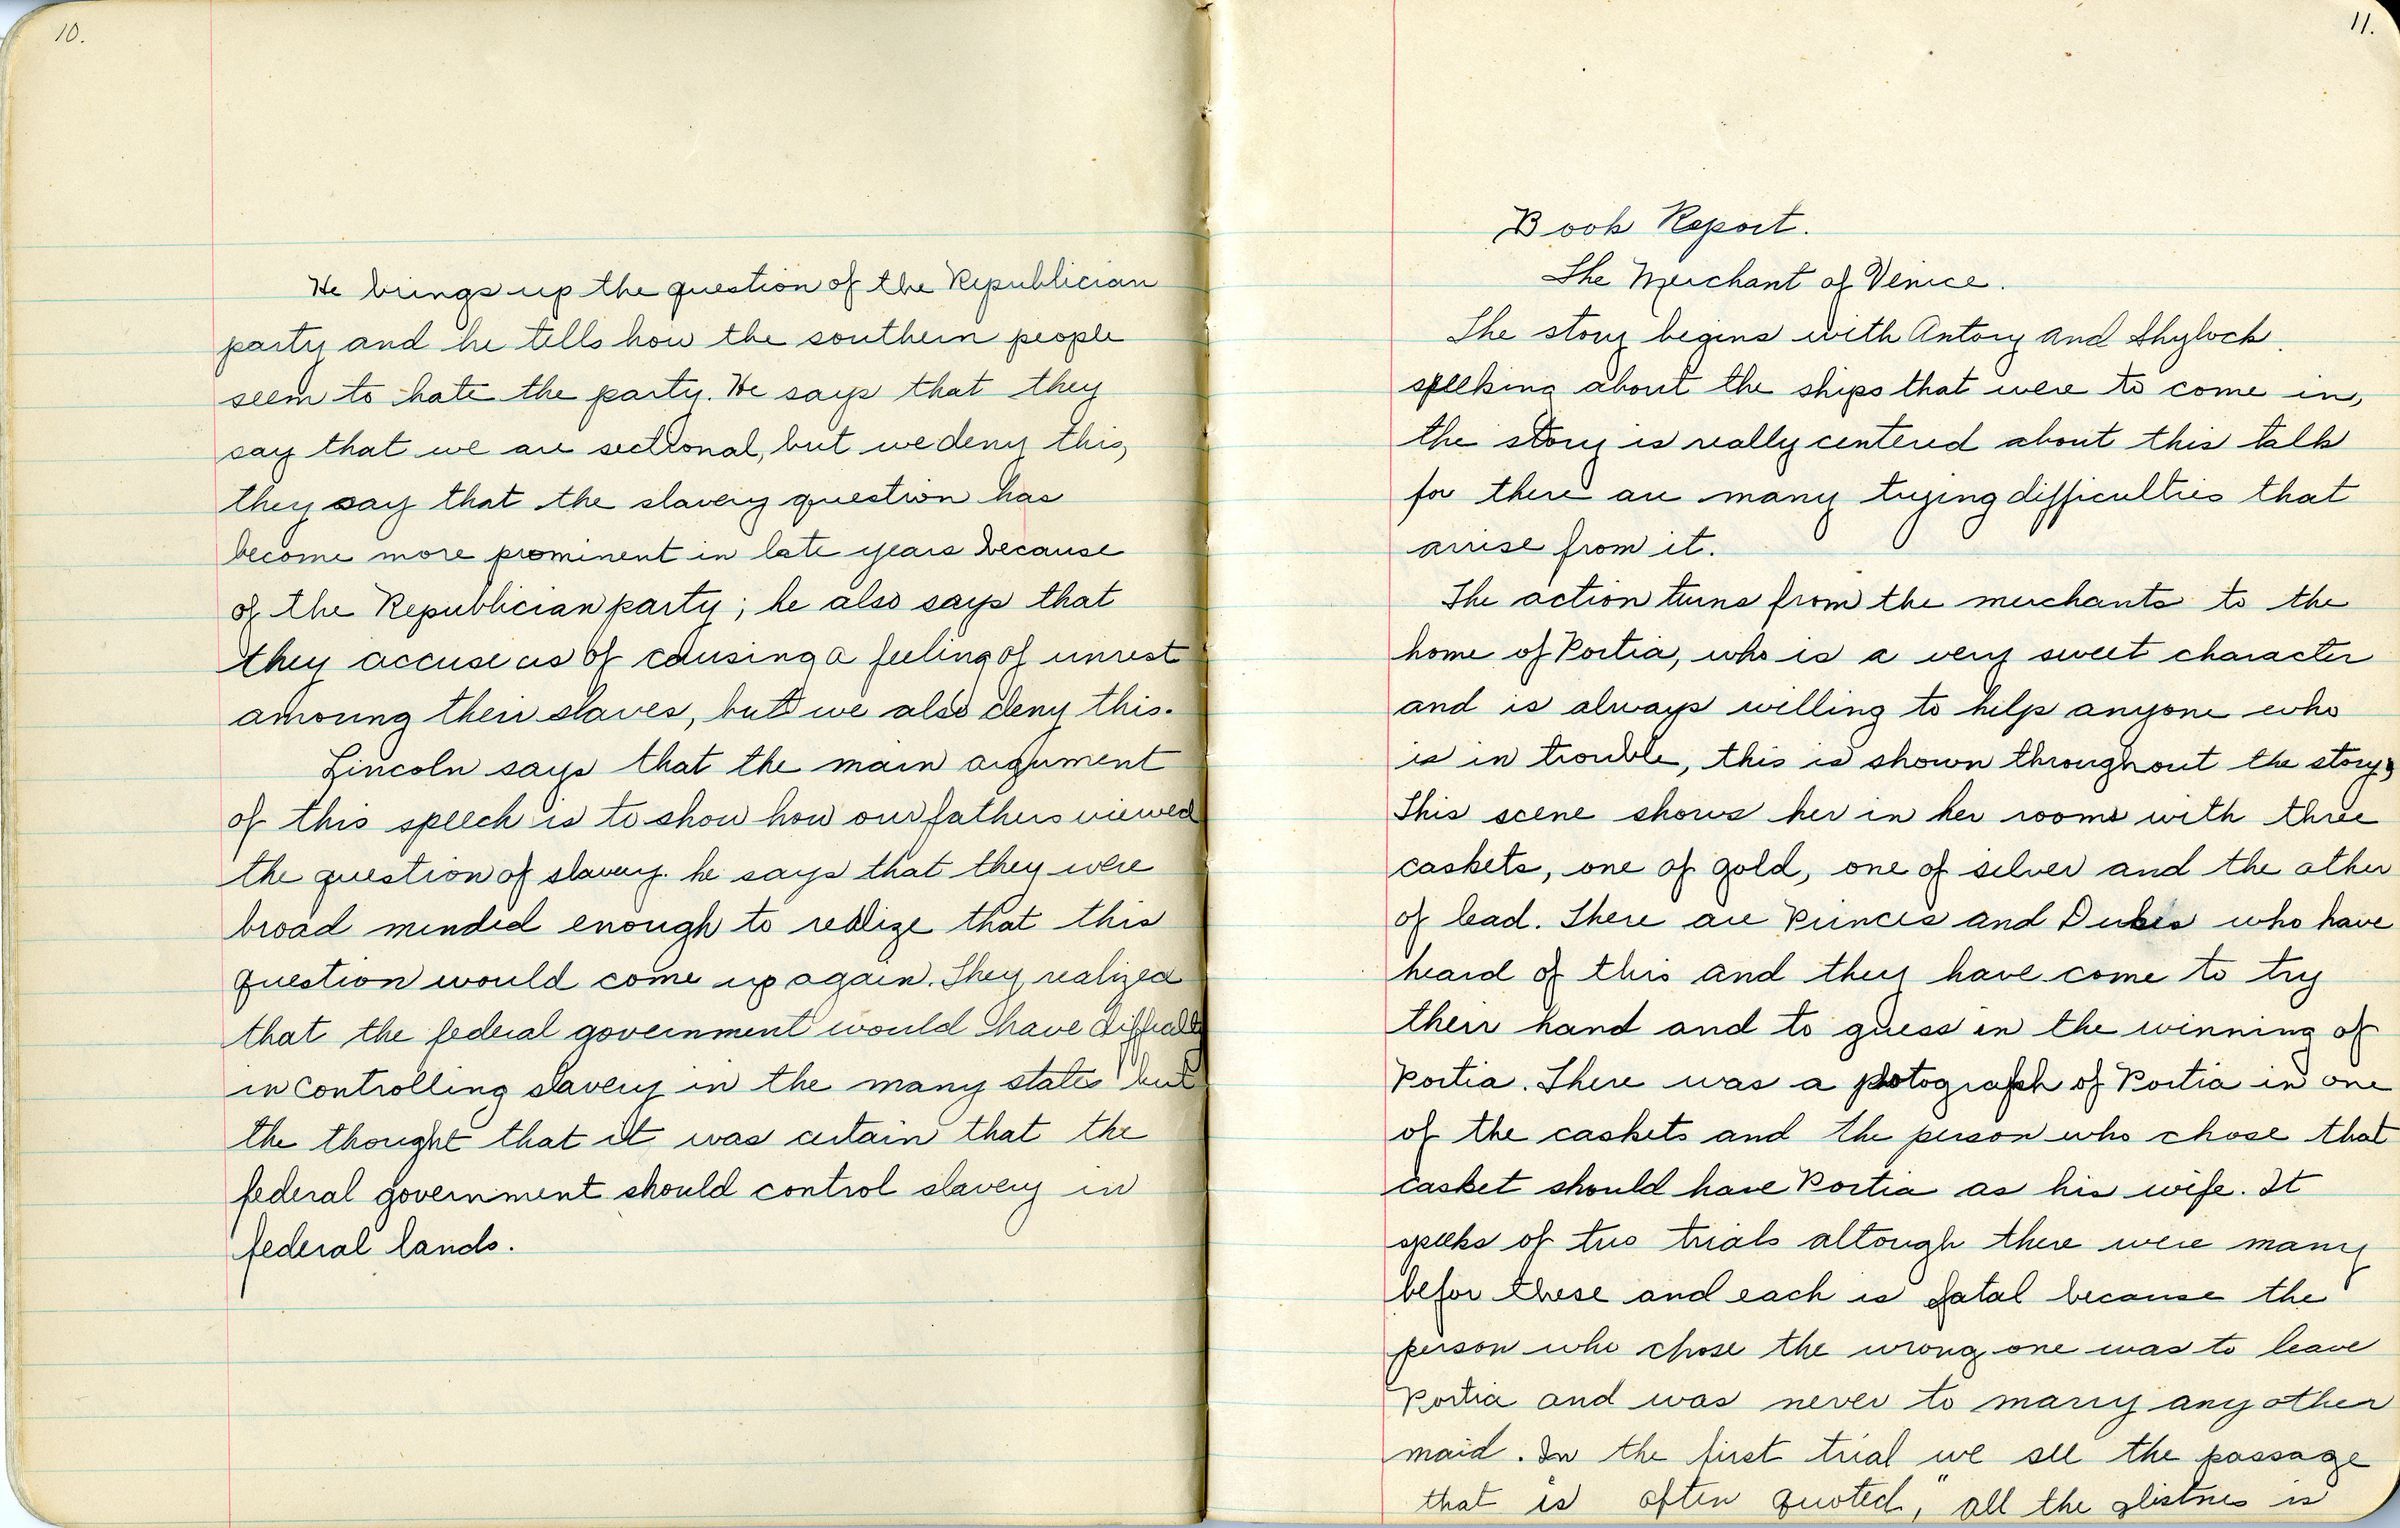 10.
He brings up the question of the Republician
party and he tells how the southern people
seem to hate the party. He says that they
say that we are sectional, but we deny this,
they say that the slavery question has
become more prominent in late years because
of the Republician party; he also says that
they accuse us of causing a feeling of unrest
amoung their slaves, but we also deny this.
Lincoln says that the main argument
of this speech is to show how our fathers viewed
the question of slavery. he says that they were
broad minded enough to realize that this
question would come up again. They realized
that the federal government would have difficulty
in controlling slavery in the many states but
the thought that it was certain that the
federal government should control slavery in
federal lands.
11.
Book Report.
The Merchant of Venice.
The story begins with Antony and Shylock
speeking about the ships that were to come in,
the story is really centered about this talk
for there are many trying difficulties that
arrise from it.
The action turns from the merchants to the
home of Portia, who is a very sweet character
and is always willing to help anyone who
is in trouble, this is shown throughout the story,
This scene shows her in her rooms with three
caskets, one of gold, one of silver and the other
of lead. There are Princes and Dukes who have
heard of this and they have come to try
their hand and to guess in the winning of
Portia. There was a photograph of Portia in one
of the caskets and the person who chose that
casket should have Portia as his wife. It
speeks of two trials altough there were many
befor these and each is fatal because the
person who chose the wrong one was to leave
Portia and was never to marry any other
maid. In the first trial we see the passage
that is often quoted, "all the glistnes is